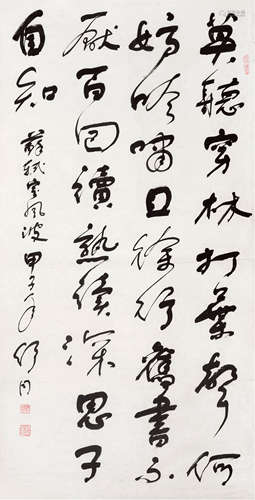 莫聽穿林打葉聲何
妨吟嘯且徐行舊書不
厭百回讀熟讀深思子
自知 蘇軾定風波 甲子年 舒同